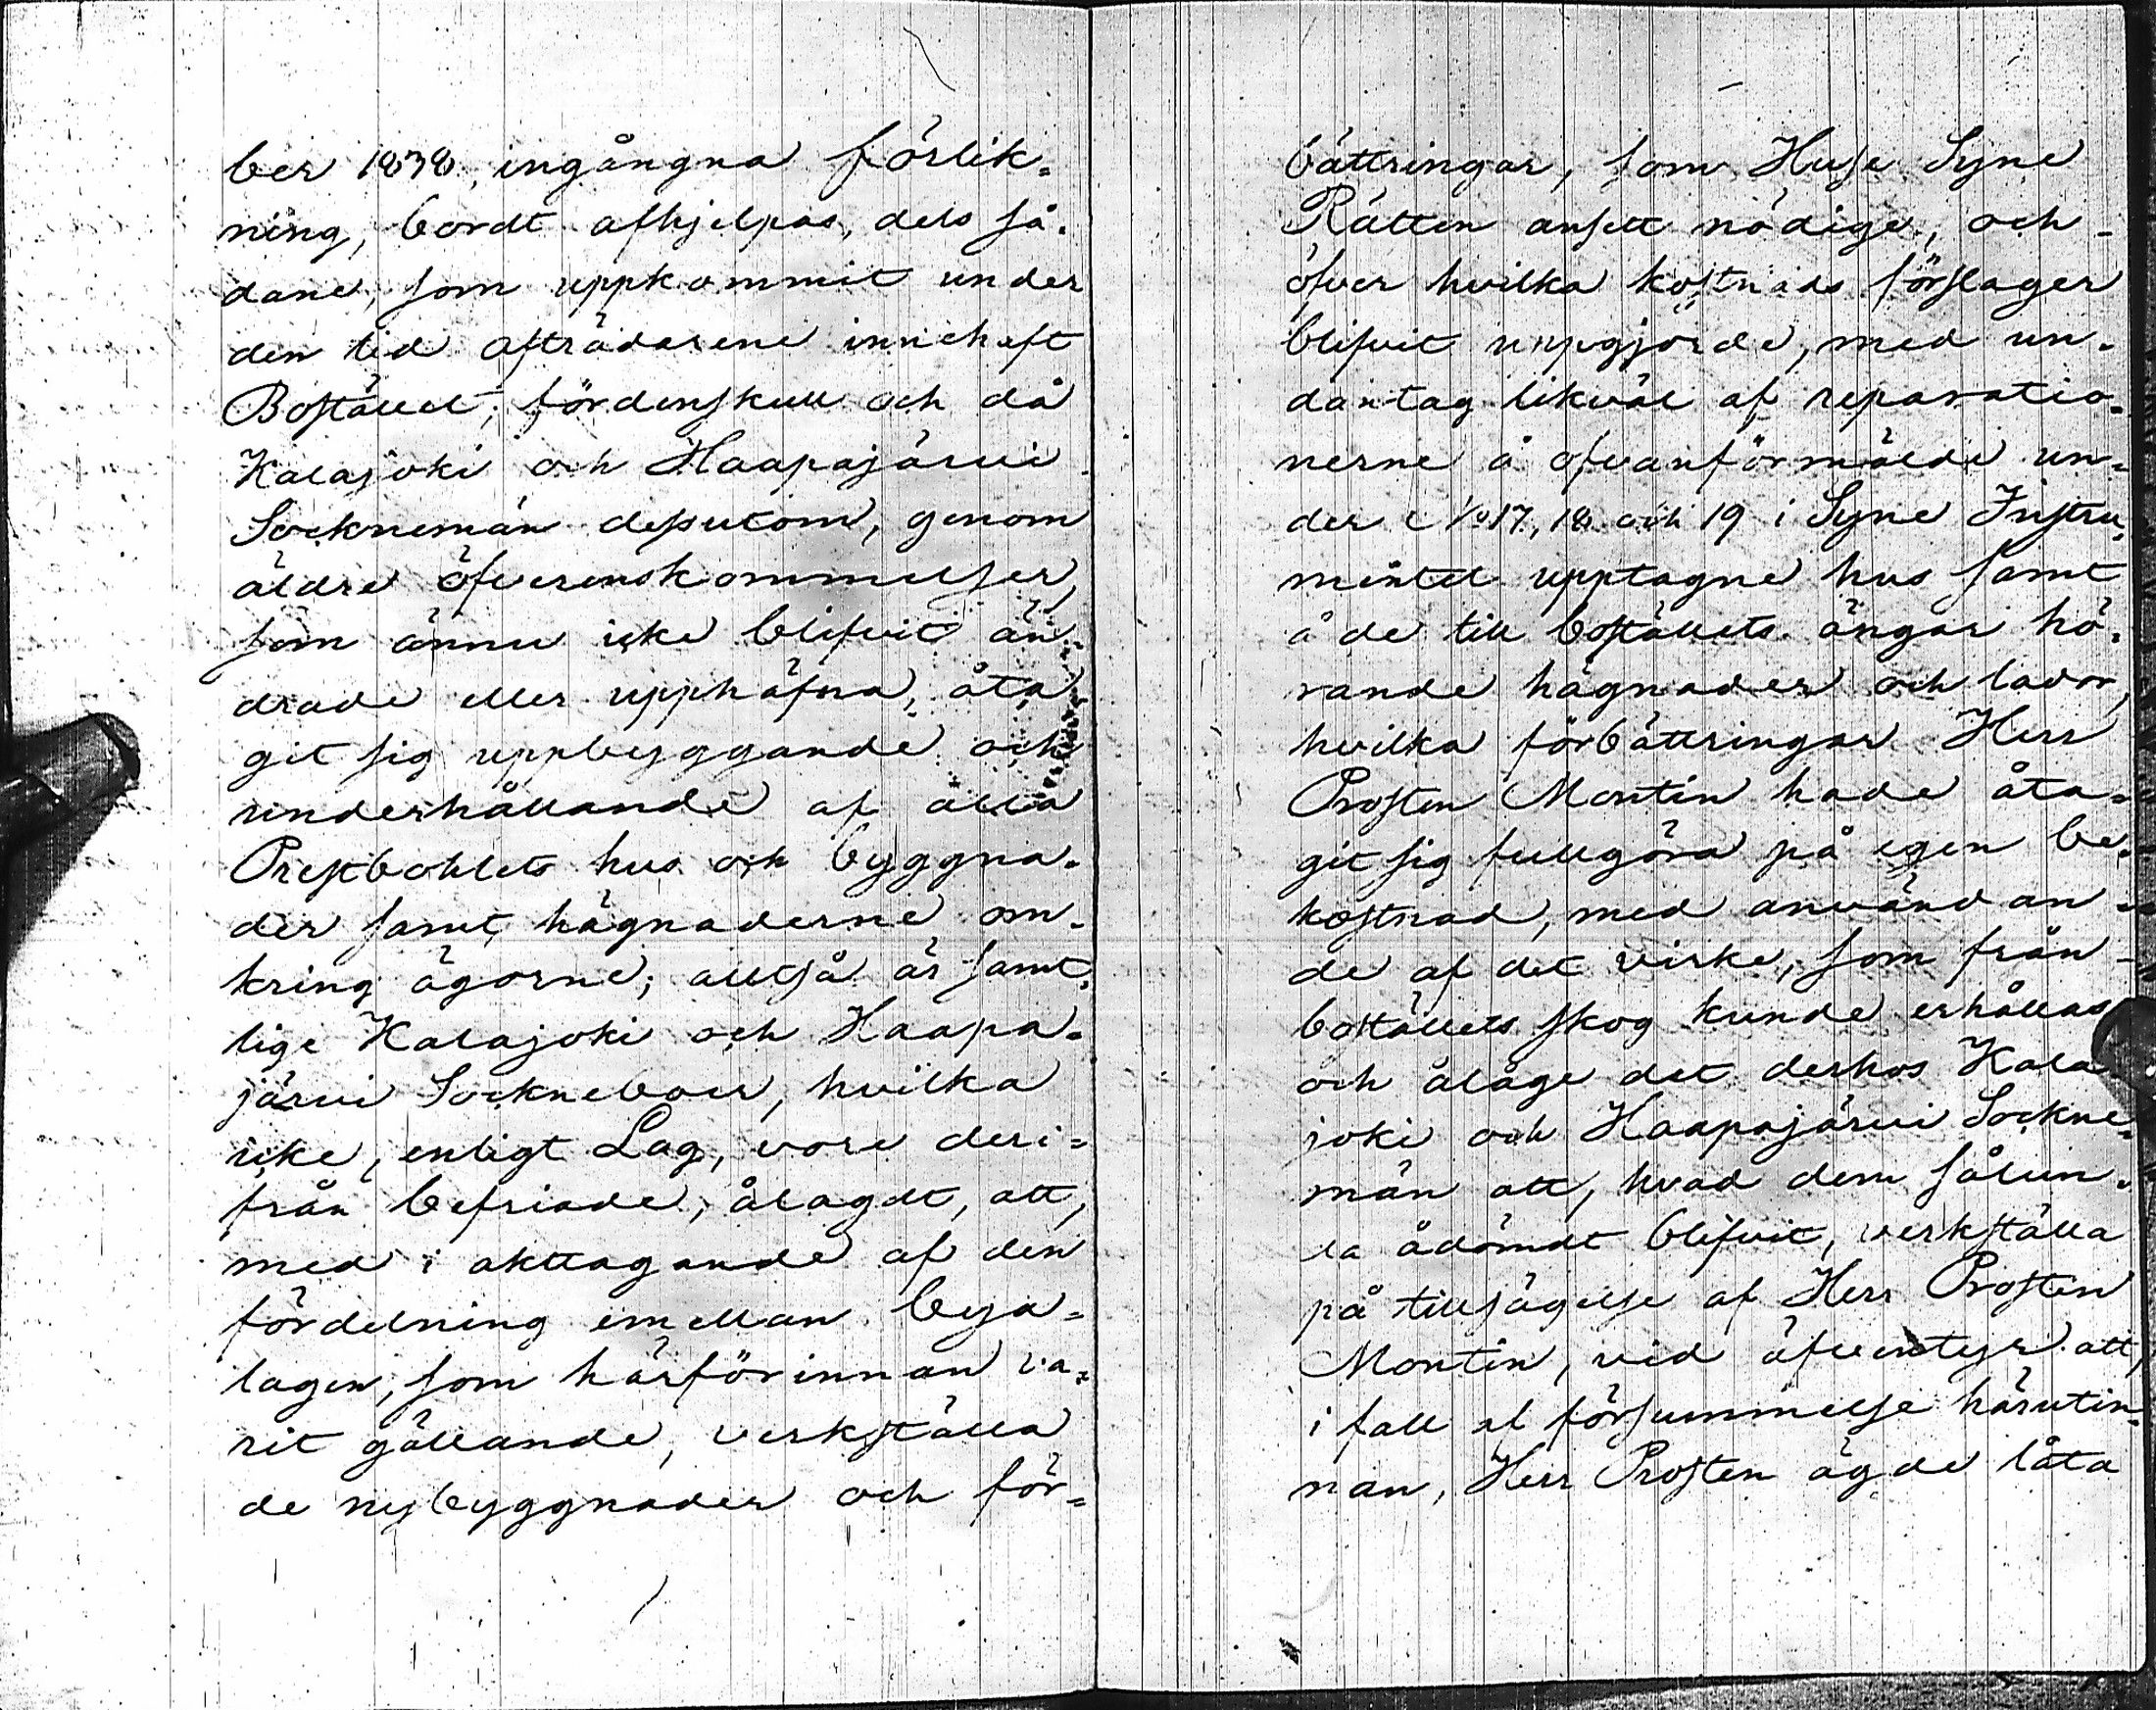 ber 1838, ingångna förlik=
ning, bordt afhjelpas, dels så=
dane, som uppkommit under
den tid afträdarene innehaft
Bostället; fördenskull och då
Kalajoki och Haapajärvi
Socknemän dessutom, genom
äldre öfverenskommelser,
som ännu icke blifvit än=
drade eller upphäfna, åta
git sig uppbyggande och
underhållande af alla
Prestbohlets hus och byggna=
der samt hägnaderne om=
kring ägorne; alltså är samt=
lige Kalajoki och Haapa=
järvi Sockneboer, hvilka
icke, enligt Lag, vore deri=
från befriade, ålagdt, att,
med i akttagande af den
fördelning emellan bya=
lagen, som härförinnan va=
rit gällande, verkställa
de nybyggnader och för=
bättringar, som Huse Syne
Rätten ansett nödige, och
öfver hvilka kostnads förslager
blifvit uppgjorde, med un=
dantag likväl af reparatio=
nerne å ofvanförmälde un=
der No 17, 18 och 19 i Syne Instru=
mentet upptagne hus samt
å de till boställets ängar hö=
rande hägnader och lador,
hvilka förbättringar Herr
Prosten Montin hade åta=
git sig fullgöra på egen be=
kostnad, med användan=
de af det virke, som från
boställets skog kunde erhållas
och ålåge det derhos Kala
joki och Haapajärvi Sockne=
män att, hvad dem sålun=
da ådömdt blifvit, verkställa
på tillsägelse af Herr Prosten
Montin, vid äfventyr att,
i fall af försummelse härutin=
nan, Herr Prosten ägde låta